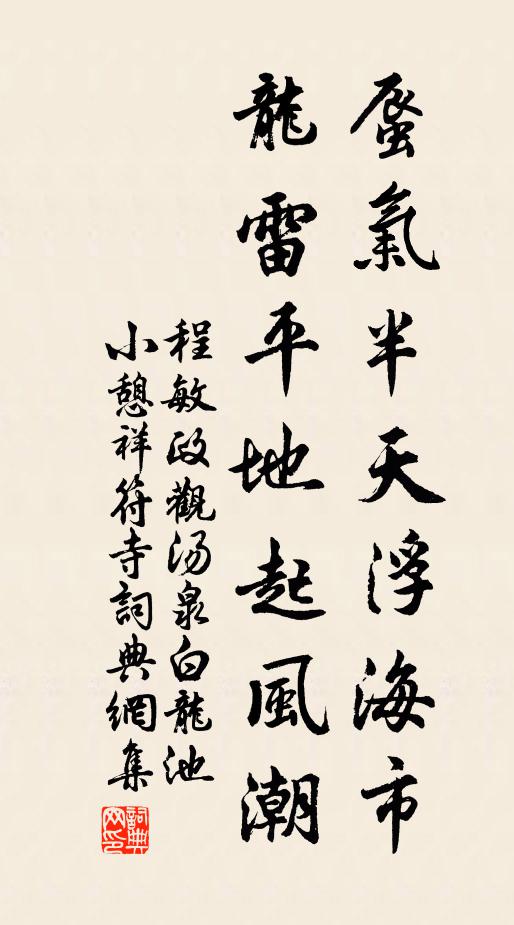 蜃氣半天浮海市
龍雷平地起風潮
程敏政觀汤泉白龍池
小憩祥符寺詞典網集
詞典网印